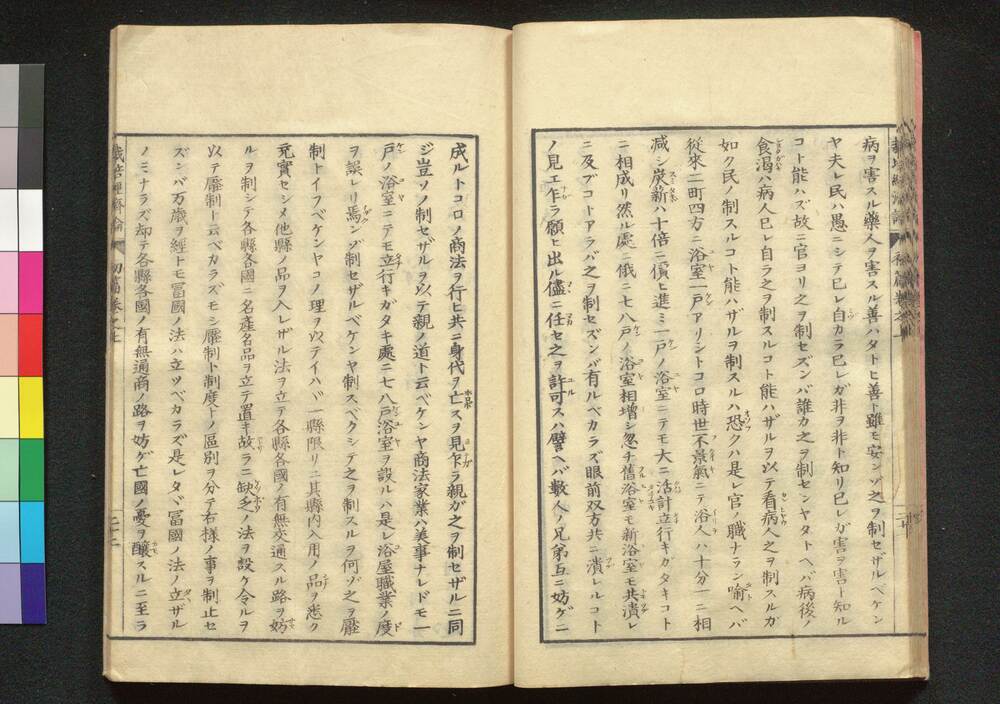 病ヲ害スル藥人ヲ害スル善ハタトヒ善ト雖モ安ンゾ之ヲ制セザルベケン
ヤ夫レ民ハ愚ニシテ已レ自カラ已レガ非ヲ非ト知リ已レガ害ヲ害ト知ル
コト能ハズ故ニ官ヨリ之ヲ制セズンバ誰カ之ヲ制センヤタトヘバ病後ノ
食渇ハ病人已レ自ラ之ヲ制スルコト能ハザルヲ以テ看病人之ヲ制スルガ
如ク民ノ制スルコト能ハザルヲ制スルハ恐クハ是レ官ノ職ナラン喻ヘバ
從來二町四方ニ浴室一戸アリシトコロ時世不景氣ニテ浴人ハ十分一ニ相
減シ炭薪ハ十倍ニ價ヒ進ミ一戸ノ浴室ニテモ大ニ活計立行キガタキコト
ニ相成リ然ル處ニ俄ニ七八戸ノ浴室相增シ忽チ舊浴室モ新浴室モ共潰レ
ニ及ブコトアラバ之ヲ制セズンバ有ルベカラズ眼前双方共ニ潰レルコト
ノ見エ乍ラ願ヒ出ル儘ニ任セ之ヲ許可スハ譬ヘバ數人ノ兄弟互ニ妨ゲニ
成ルトコロノ商法ヲ行ヒ共ニ身代ヲ亡スヲ見乍ラ親ガ之ヲ制セザルニ同
ジ豈ソノ制セザルヲ以テ親ノ道ト云ベケンヤ商法家業ハ美事ナレドモ一
戸ノ浴室ニテモ立行キガタキ處ニ七八戸浴室ヲ設ルハ是レ浴屋職業ノ度
ヲ誤レリ焉ンゾ制セザルベケンヤ制スベクシテ之ヲ制スルヲ何ゾ之ヲ壓
制トイフベケンヤコノ理ヲ以テイハヾ一縣限リニ其縣内入用ノ品ヲ悉ク
充實セシメ他縣ノ品ヲ入レザル法ヲ立テ各縣各國ノ有無交通スル路ヲ妨
ルヲ制シテ各縣各國ニ名產名品ヲ立テ置キ故ラニ缺乏ノ法ヲ設ケ令ルヲ
以テ壓制ト云ベカラズモシ壓制ト制度トノ區別ヲ分テ右樣ノ事ヲ制止セ
ズンバ万歲ヲ經トモ冨國ノ法ハ立ツベカラズ是レタヾ冨國ノ法ノ立ザル
ノミナラズ却テ各縣各國ノ有無通商ノ路ヲ妨ゲ亡國ノ憂ヲ釀スルニ至ラ
初篇卷之上
二十二